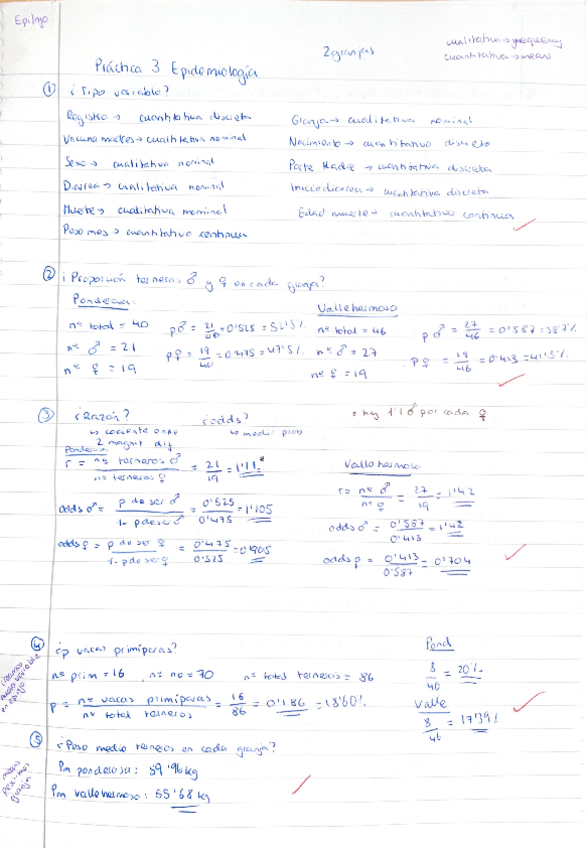 EpiInfo
2 granjas
cualitativa → frequency
cuantitativa → means
Práctica 3 Epidemiología
① ¿Tipo variable?
Registro → cuantitativa discreta
Granja → cualitativa nominal
Vacuna madres → cualitativa nominal
Nacimiento → cuantitativa discreta
Sexo → cualitativa nominal
Parte Madre → cuantitativa discreta
Diarrea → cualitativa nominal
Inicio diarrea → cuantitativa discreta
Muerte → cualitativa nominal
Edad muerte → cuantitativa continua
Peso mes → cuantitativa continua
② ¿Proporción terneros ♂ y ♀ en cada granja?
Ponderosa:
Vallehermoso
nº total = 40
p♂ = 21/40 = 0'525 = 52'5%
nº total = 46
p♂ = 27/46 = 0'587 = 58'7%
nº ♂ = 21
p♀ = 19/40 = 0'475 = 47'5%
nº ♂ = 27
p♀ = 19/46 = 0'413 = 41'3%
nº ♀ = 19
nº ♀ = 19
③ ¿Razón?
¿odds?
* hay 1'1 ♂ por cada ♀
↳ cociente entre
2 magnit dif
↳ medir prob
Ponderosa
r = nº terneros ♂ / nº terneros ♀ = 21/19 = 1'11 *
Vallehermoso
r = nº ♂ / nº ♀ = 27/19 = 1'42
odds ♂ = p de ser ♂ / 1 - p de ser ♂ = 0'525/0'475 = 1'105
odds ♂ = 0'587/0'413 = 1'42
odds ♀ = p de ser ♀ / 1 - p de ser ♀ = 0'475/0'525 = 0'905
odds ♀ = 0'413/0'587 = 0'704
④ ¿p vacas primíparas?
Pond
nº prim = 16, nº no = 70
nº total terneros = 86
8/40 = 20%
p = nº vacas primíparas / nº total terneros = 16/86 = 0'186 = 18'60%
Valle
8/46 = 17'39%
⑤ ¿Peso medio terneros en cada granja?
Pm ponderosa: 59'96 kg
Pm vallehermoso: 55'68 kg
nueva variable
en epiinfo
means
granja